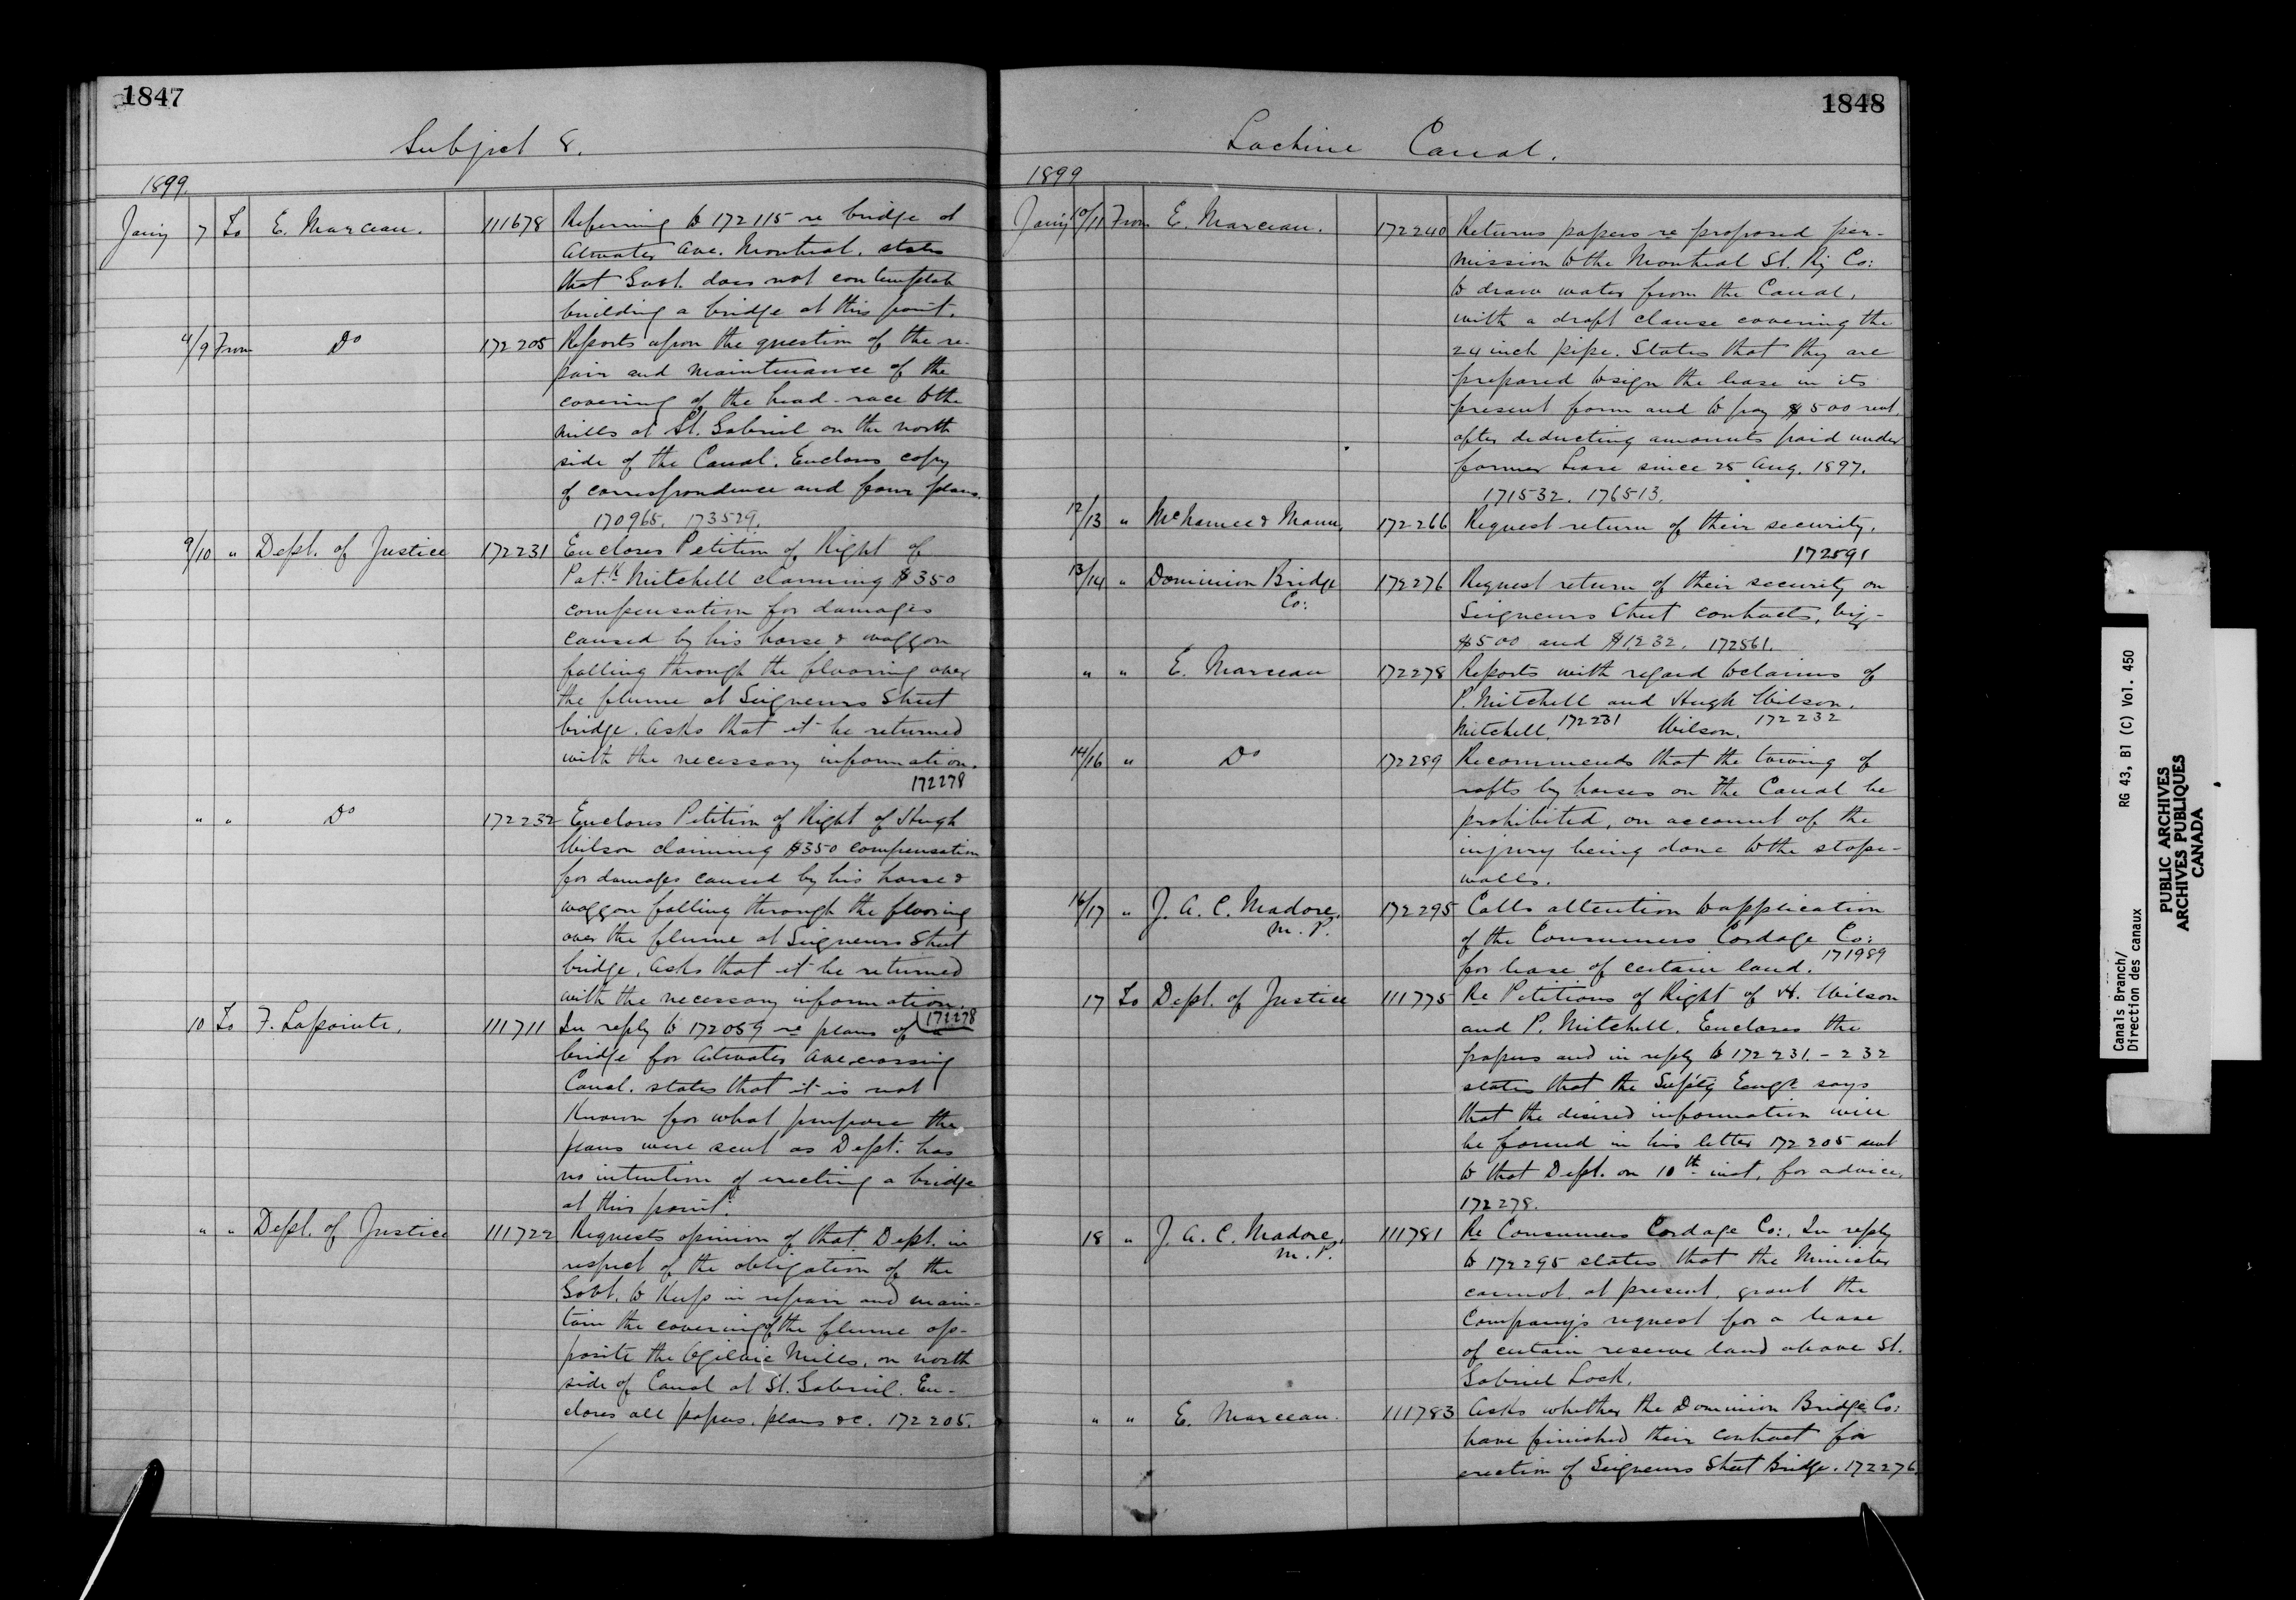 1847
Subject 8.
1899.
Jany 7 To E. Marceau. 111678 Referring to 172115 re bridge at
Atwater Ave. Montreal. states
that Govt. does not contemplate
building a bridge at this point.
4/9 From Do 172205 Reports upon the question of the re-
pair and maintenance of the
covering of the head-race to the
mills at St. Gabriel on the north
side of the Canal. Encloses copy
of correspondence and four plans.
170965. 173529.
9/10 " Dept. of Justice 172231 Encloses Petition of Right of
Patk. Mitchell claiming $350
compensation for damages
caused by his horse & waggon
falling through the flooring over
the flume at Seigneurs Street
bridge. Asks that it be returned
with the necessary information.
172278
" " Do 172232 Encloses Petition of Right of Hugh
Wilson claiming $350 compensation
for damages caused by his horse &
waggon falling through the flooring
over the flume at Seigneurs Street
bridge. Asks that it be returned
with the necessary information.
172278
10 To F. Lapointe. 111711 In reply to 172059 re plans of a
bridge for Atwater Ave. crossing
Canal. states that it is not
known for what purpose the
plans were sent as Dept. has
no intention of erecting a bridge
at this point.
" " Dept. of Justice 111722 Requests opinion of that Dept. in
respect of the obligation of the
Govt. to keep in repair and main-
tain the covering of the flume op-
posite the Ogilvie Mills, on north
side of Canal at St. Gabriel. En-
closes all papers, plans &c. 172205.
1848
Lachine Canal.
1899
Jany 10/11 From E. Marceau. 172240 Returns papers re proposed per-
mission to the Montreal St. Ry Co:
to draw water from the Canal,
with a draft clause covering the
24 inch pipe. States that they are
prepared to sign the lease in its
present form and to pay $500 rent.
after deducting amounts paid under
former Lease since 25 Aug. 1897.
171532. 176513.
12/13 " McNamee & Mann, 172266 Request return of their security.
172591
13/14 " Dominion Bridge Co: 172276 Request return of their security on
Seigneurs Street contracts, viz-
$500 and $1,232. 172561.
" " E. Marceau 172278 Reports with regard to claims of
P. Mitchell and Hugh Wilson.
Mitchell. 172231 Wilson. 172232
14/16 " Do 172289 Recommends that the towing of
rafts by horses on the Canal be
prohibited, on account of the
injury being done to the slope-
walls.
16/17 " J. A. C. Madore, M.P. 172295 Calls attention to application
of the Consumers Cordage Co:
for lease of certain land. 171989
17 To Dept. of Justice 111775 Re Petitions of Right of H. Wilson
and P. Mitchell. Encloses the
papers and in reply to 172231.-232
states that the Supt'g Engr. says
that the desired information will
be found in his letter 172205 sent
to that Dept. on 10th inst. for advice.
172278.
18 " J. A. C. Madore, M.P. 111781 Re Consumers Cordage Co:. In reply
to 172295 states that the Minister
cannot, at present, grant the
Company's request for a lease
of certain reserve land above St.
Gabriel Lock.
" " E. Marceau. 111783 Asks whether the Dominion Bridge Co:
have finished their contract for
erection of Seigneurs Street Bridge. 172276
Canals Branch/ RG 43, B1 (C) Vol. 450
Direction des canaux
PUBLIC ARCHIVES
ARCHIVES PUBLIQUES
CANADA